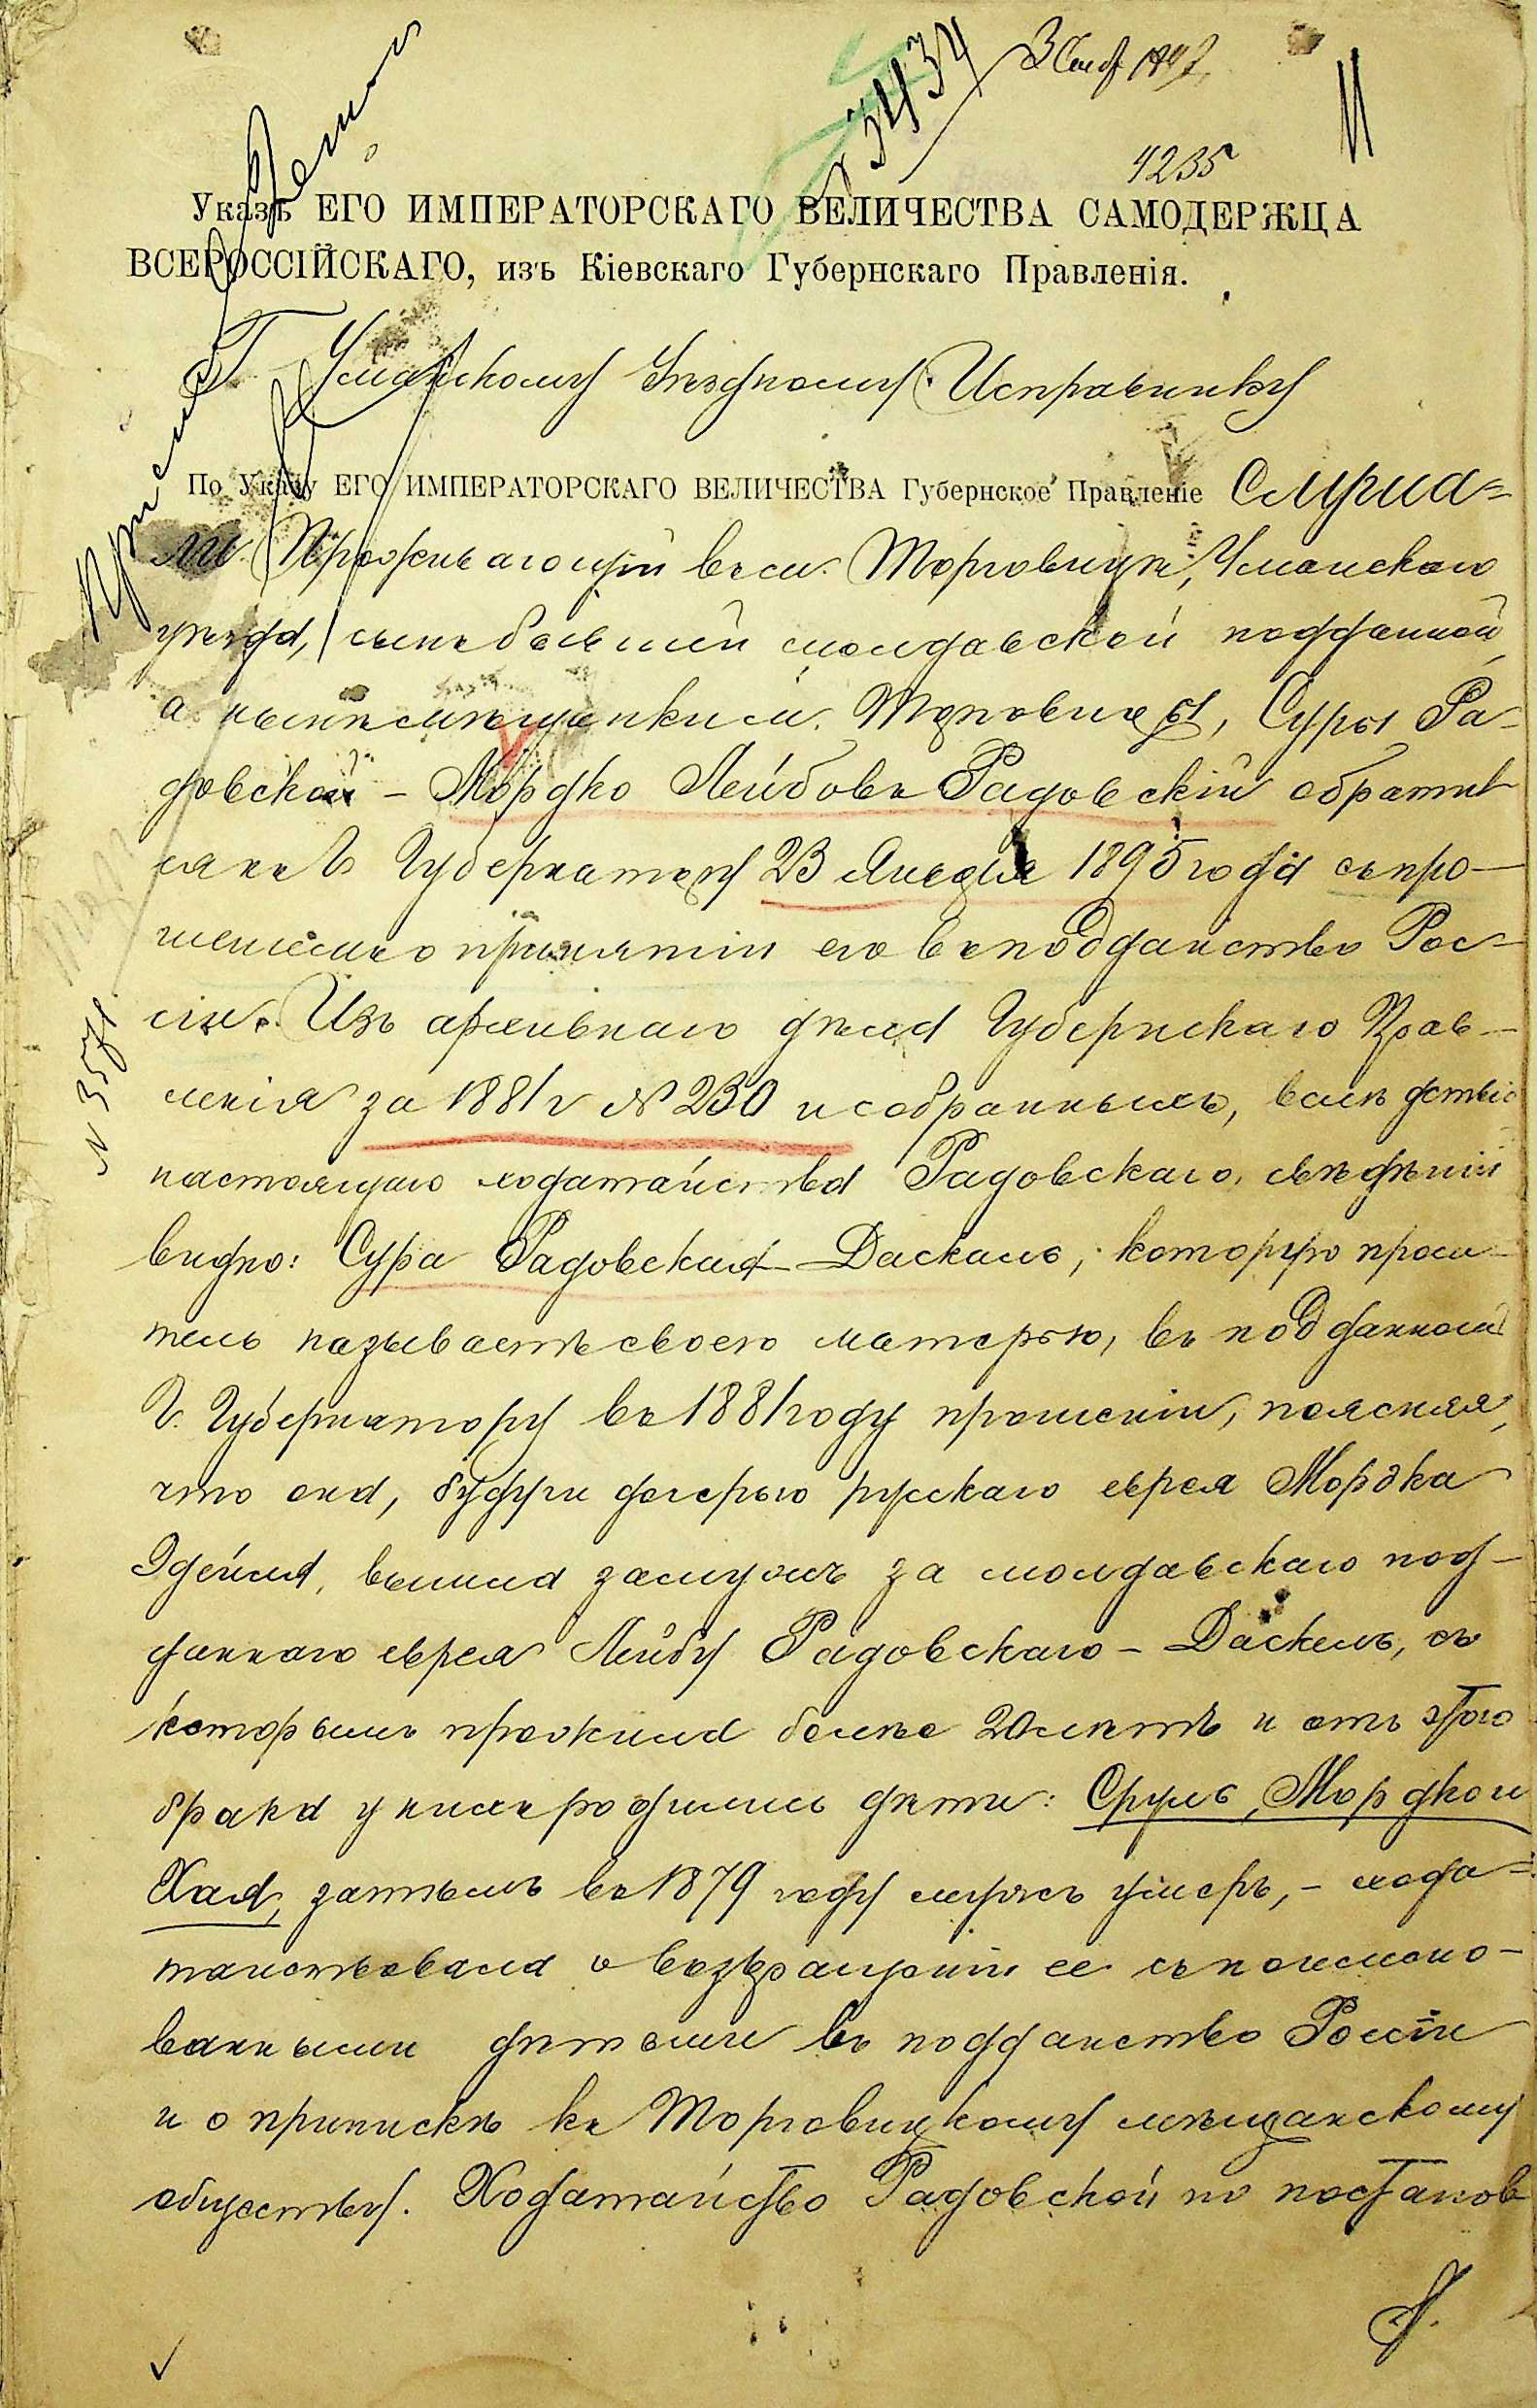 34434
3 Сент 1897
11
4235
Указъ ЕГО ИМПЕРАТОРСКАГО ВЕЛИЧЕСТВА САМОДЕРЖЦА
ВСЕРОССІЙСКАГО, изъ Кіевскаго Губернскаго Правленія.
Г. Уманскому Уѣздному Исправнику
По Указу ЕГО ИМПЕРАТОРСКАГО ВЕЛИЧЕСТВА Губернское Правленіе Слуша-
ли: Проживающій въ м. Торговицѣ, Уманскаго
уѣзда, сынъ бывшей молдавской подданной,
а нынѣ мѣщанки м. Торговицы, Суры Ра-
довской - Мордко Лейбовъ Радовскій обратил
ся къ Г. Губернатору 23 Января 1895 года съ про-
шеніемъ о принятіи его въ подданство Рос-
сіи. Изъ архивнаго дѣла Губернскаго Прав-
ленія за 1881 г № 230 и собранныхъ, вслѣдствіе
настоящаго ходатайства Радовскаго, свѣдѣній
видно: Сура Радовская-Даскаль, которую проси-
тель называетъ своею матерью, въ поданномъ
Г. Губернатору въ 1881 году прошеніи, поясняя,
что она, будучи дочерью русскаго еврея Мордка
Эдейма, вышла замужъ за молдавскаго под-
даннаго еврея Лейбу Радовскаго-Даскель, съ
которымъ прожила болѣе 20 лѣтъ и отъ этого
брака у нихъ родились дѣти: Сруль, Мордко и
Хая, затѣмъ въ 1879 году мужъ умеръ, - хода-
тайствовала о возвращеніи ее съ поимено-
ванными дѣтьми въ подданство Россіи
и о припискѣ къ Торговицкому мѣщанскому
обществу. Ходатайство Радовской по постанов